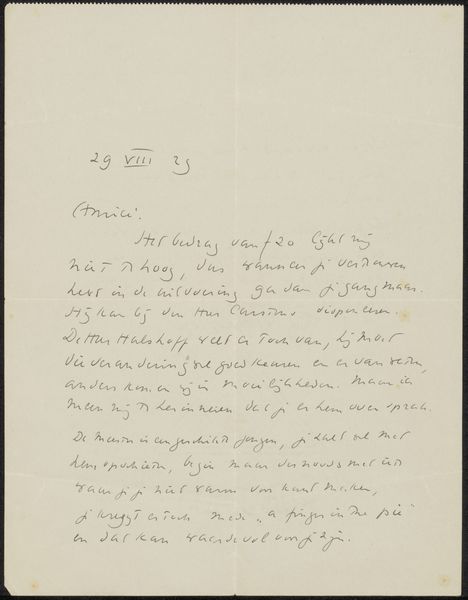 29 VIII 29
Amice!
Het bedrag van f 20 lijkt mij
niet te hoog, dus wanneer je vertrouwen
hebt in de uitvoering ga dan je gang maar.
Hij kan bij den Heer Carstens
De Heer Hulshoff weet er toch van, hij moet
die verandering wel goedkeuren en er van weten,
anders komen wij in moeilijkheden. Maar ik
meen mij te herinneren dat je er hem over sprak.
De is een geschikte jongen, je zult wel met
hem opschieten, begin maar desnoods met iets
waar je je niet warm voor kunt maken,
je krijgt er toch mede "a finger in the pie"
en dat kan waardevol voor je zijn.